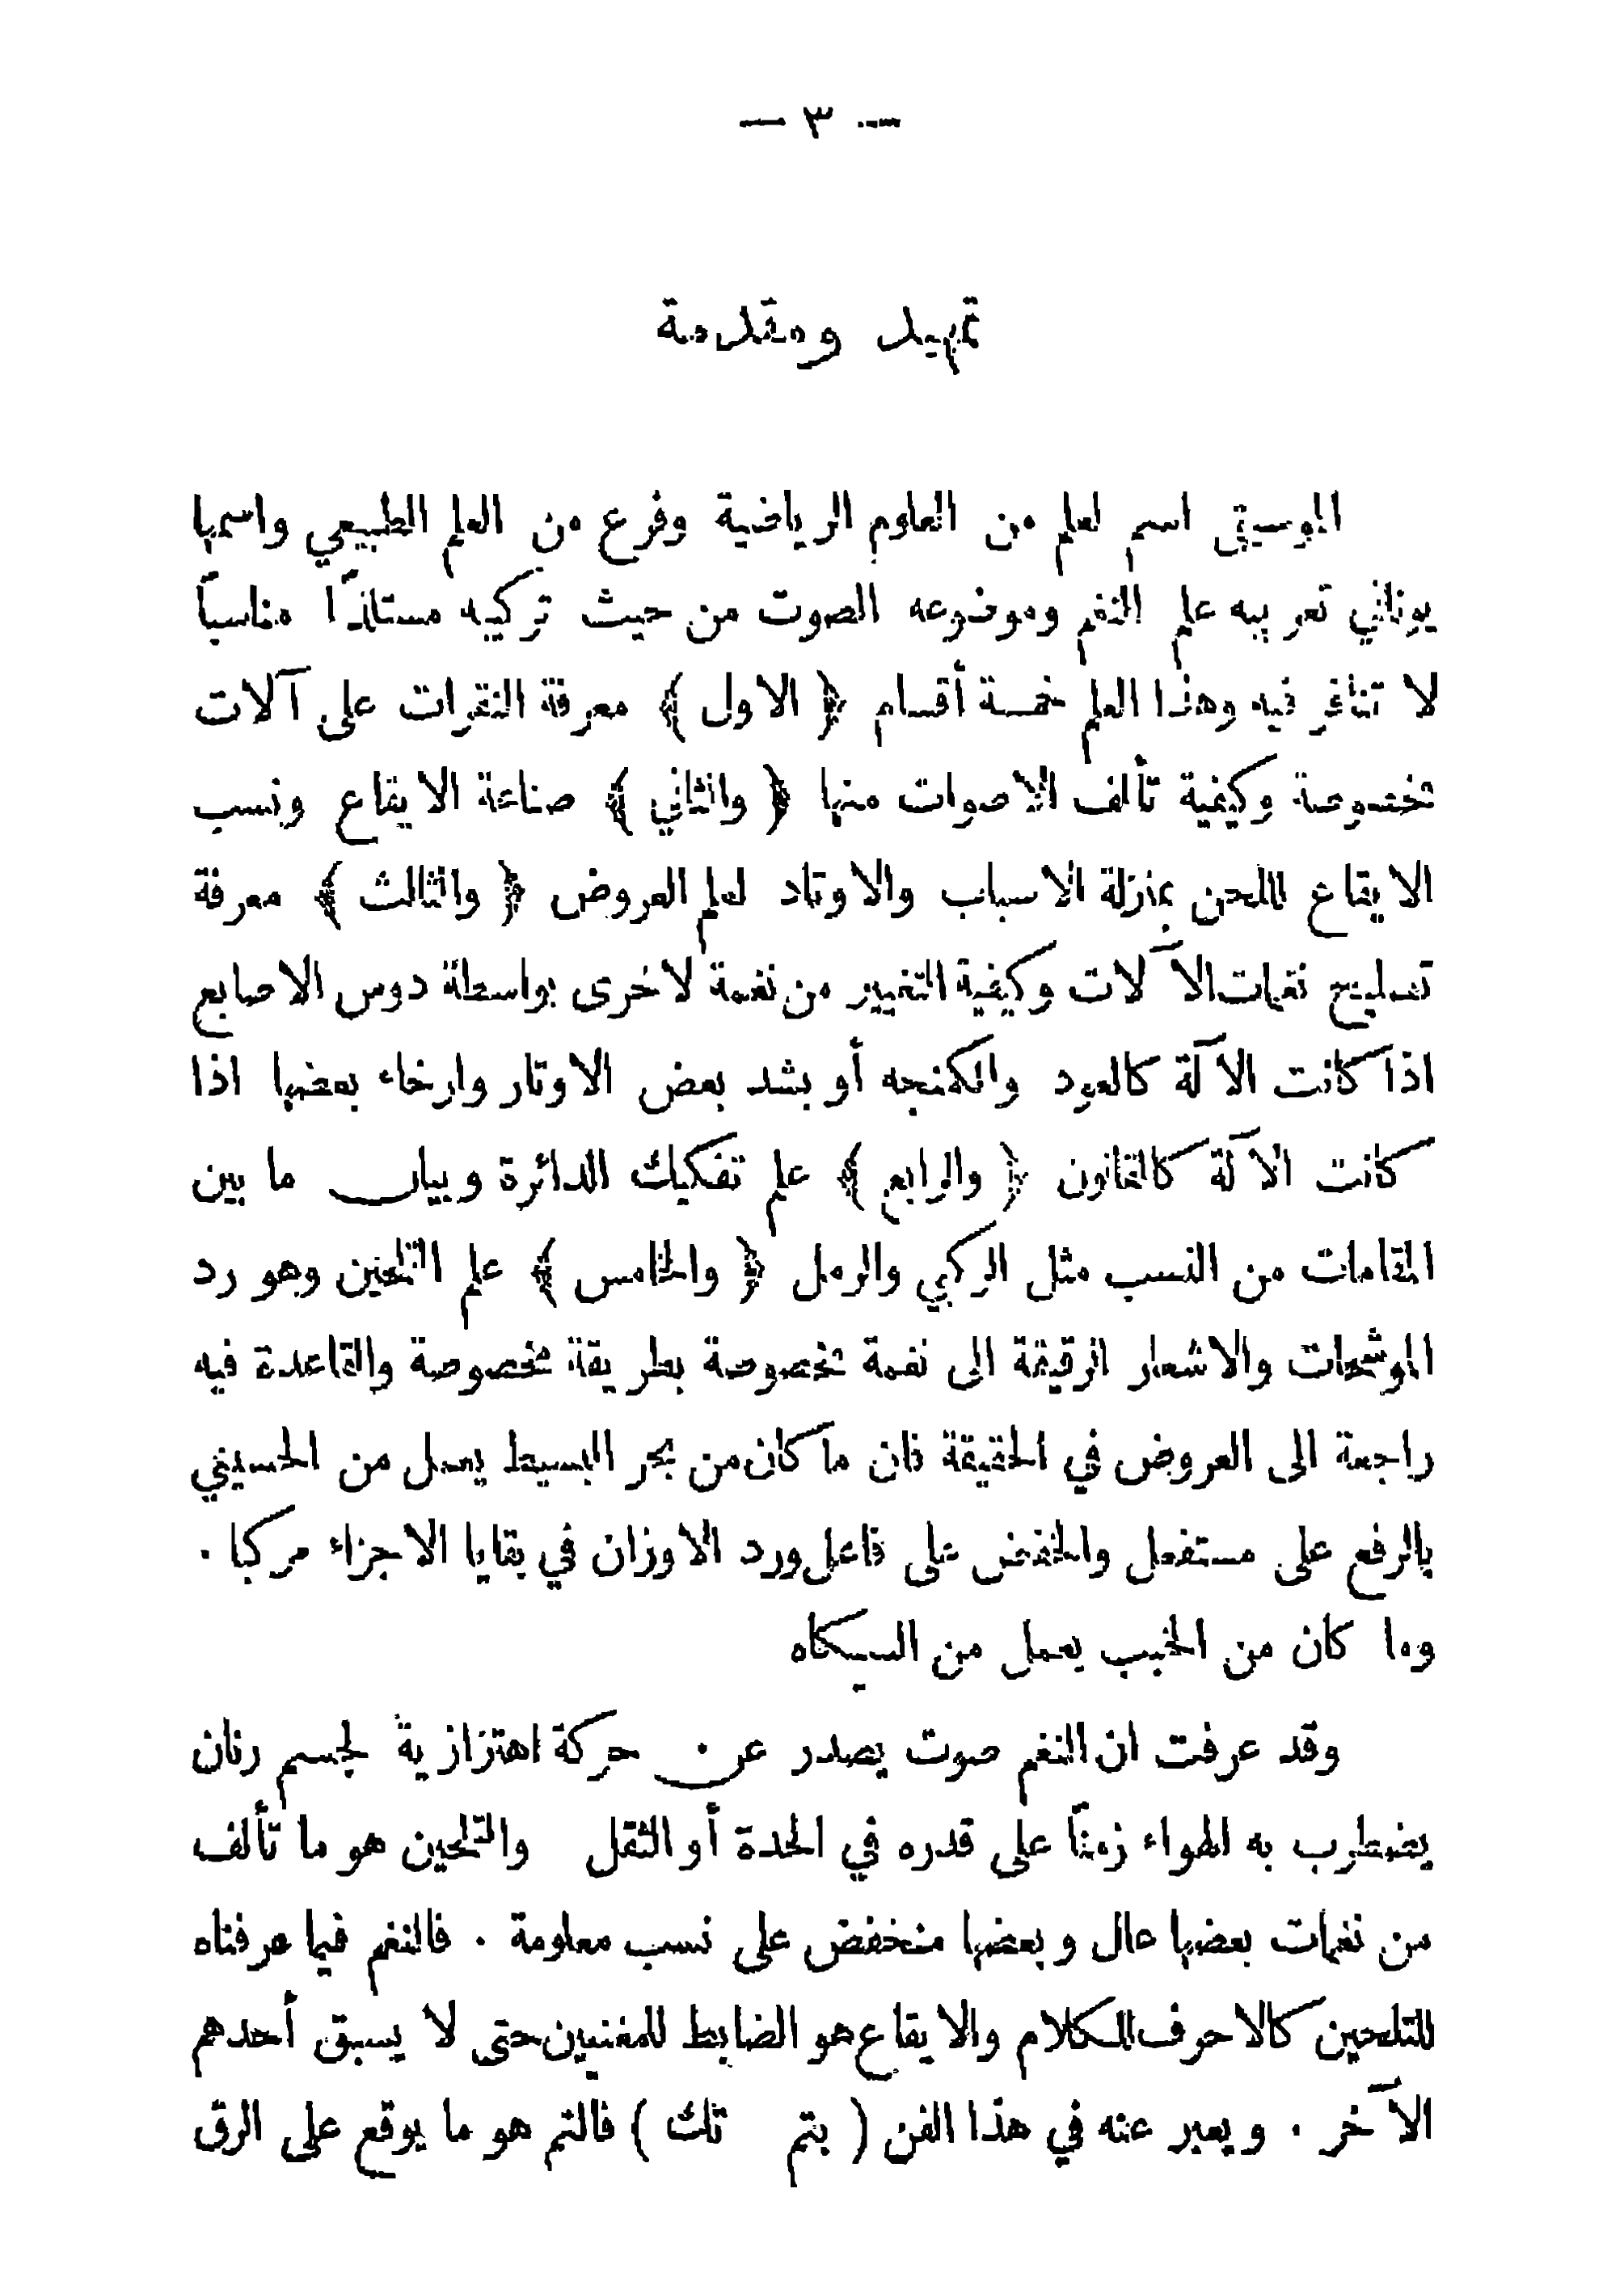 — ٣ —
تمهيد ومقدمة
الموسيقى اسم لعلم من العلوم الرياضية وفرع من العلم الطبيعي واسمها
يوناني تعريبه علم النغم وموضوعه الصوت من حيث تركيبه مستلذاً مناسباً
لا تنافر فيه وهذا العلم خمسة أقسام ﴿ الاول ﴾ معرفة النقرات على آلات
مخصوصة وكيفية تألف الاصوات منها ﴿ والثاني ﴾ صناعة الايقاع ونسب
الايقاع للحن بمنزلة الاسباب والاوتاد لعلم العروض ﴿ والثالث ﴾ معرفة
تصليح نغمات الآلات وكيفية التغيير من نغمة لاخرى بواسطة دوس الاصابع
اذا كانت الآلة كالعود والكمنجه أو بشد بعض الاوتار وارخاء بعضها اذا
كانت الآلة كالقانون ﴿ والرابع ﴾ علم تفكيك الدائرة وبيان ما بين
المقامات من النسب مثل الركبي والرمل ﴿ والخامس ﴾ علم التلحين وهو رد
الموشحات والاشعار الرقيقة الى نغمة مخصوصة بطريقة مخصوصة والقاعدة فيه
راجعة الى العروض في الحقيقة فان ما كان من بحر البسيط يعمل من الحسيني
بالرفع على مستفعل والخفض على فاعل ورد الاوزان في بقايا الاجزاء مركبا .
وما كان من الخبب يعمل من السيكاه
وقد عرفت ان النغم صوت يصدر عن حركة اهتزازية لجسم رنان
يضطرب به الهواء زمناً على قدره في الحدة أو الثقل والتلحين هو ما تألف
من نغمات بعضها عال وبعضها منخفض على نسب معلومة . فالنغم فيما عرفناه
للتلحين كالاحرف للكلام والايقاع هو الضابط للمغنيين حتى لا يسبق أحدهم
الآخر . ويعبر عنه في هذا الفن ( بتم تك ) فالتم هو ما يوقع على الرق